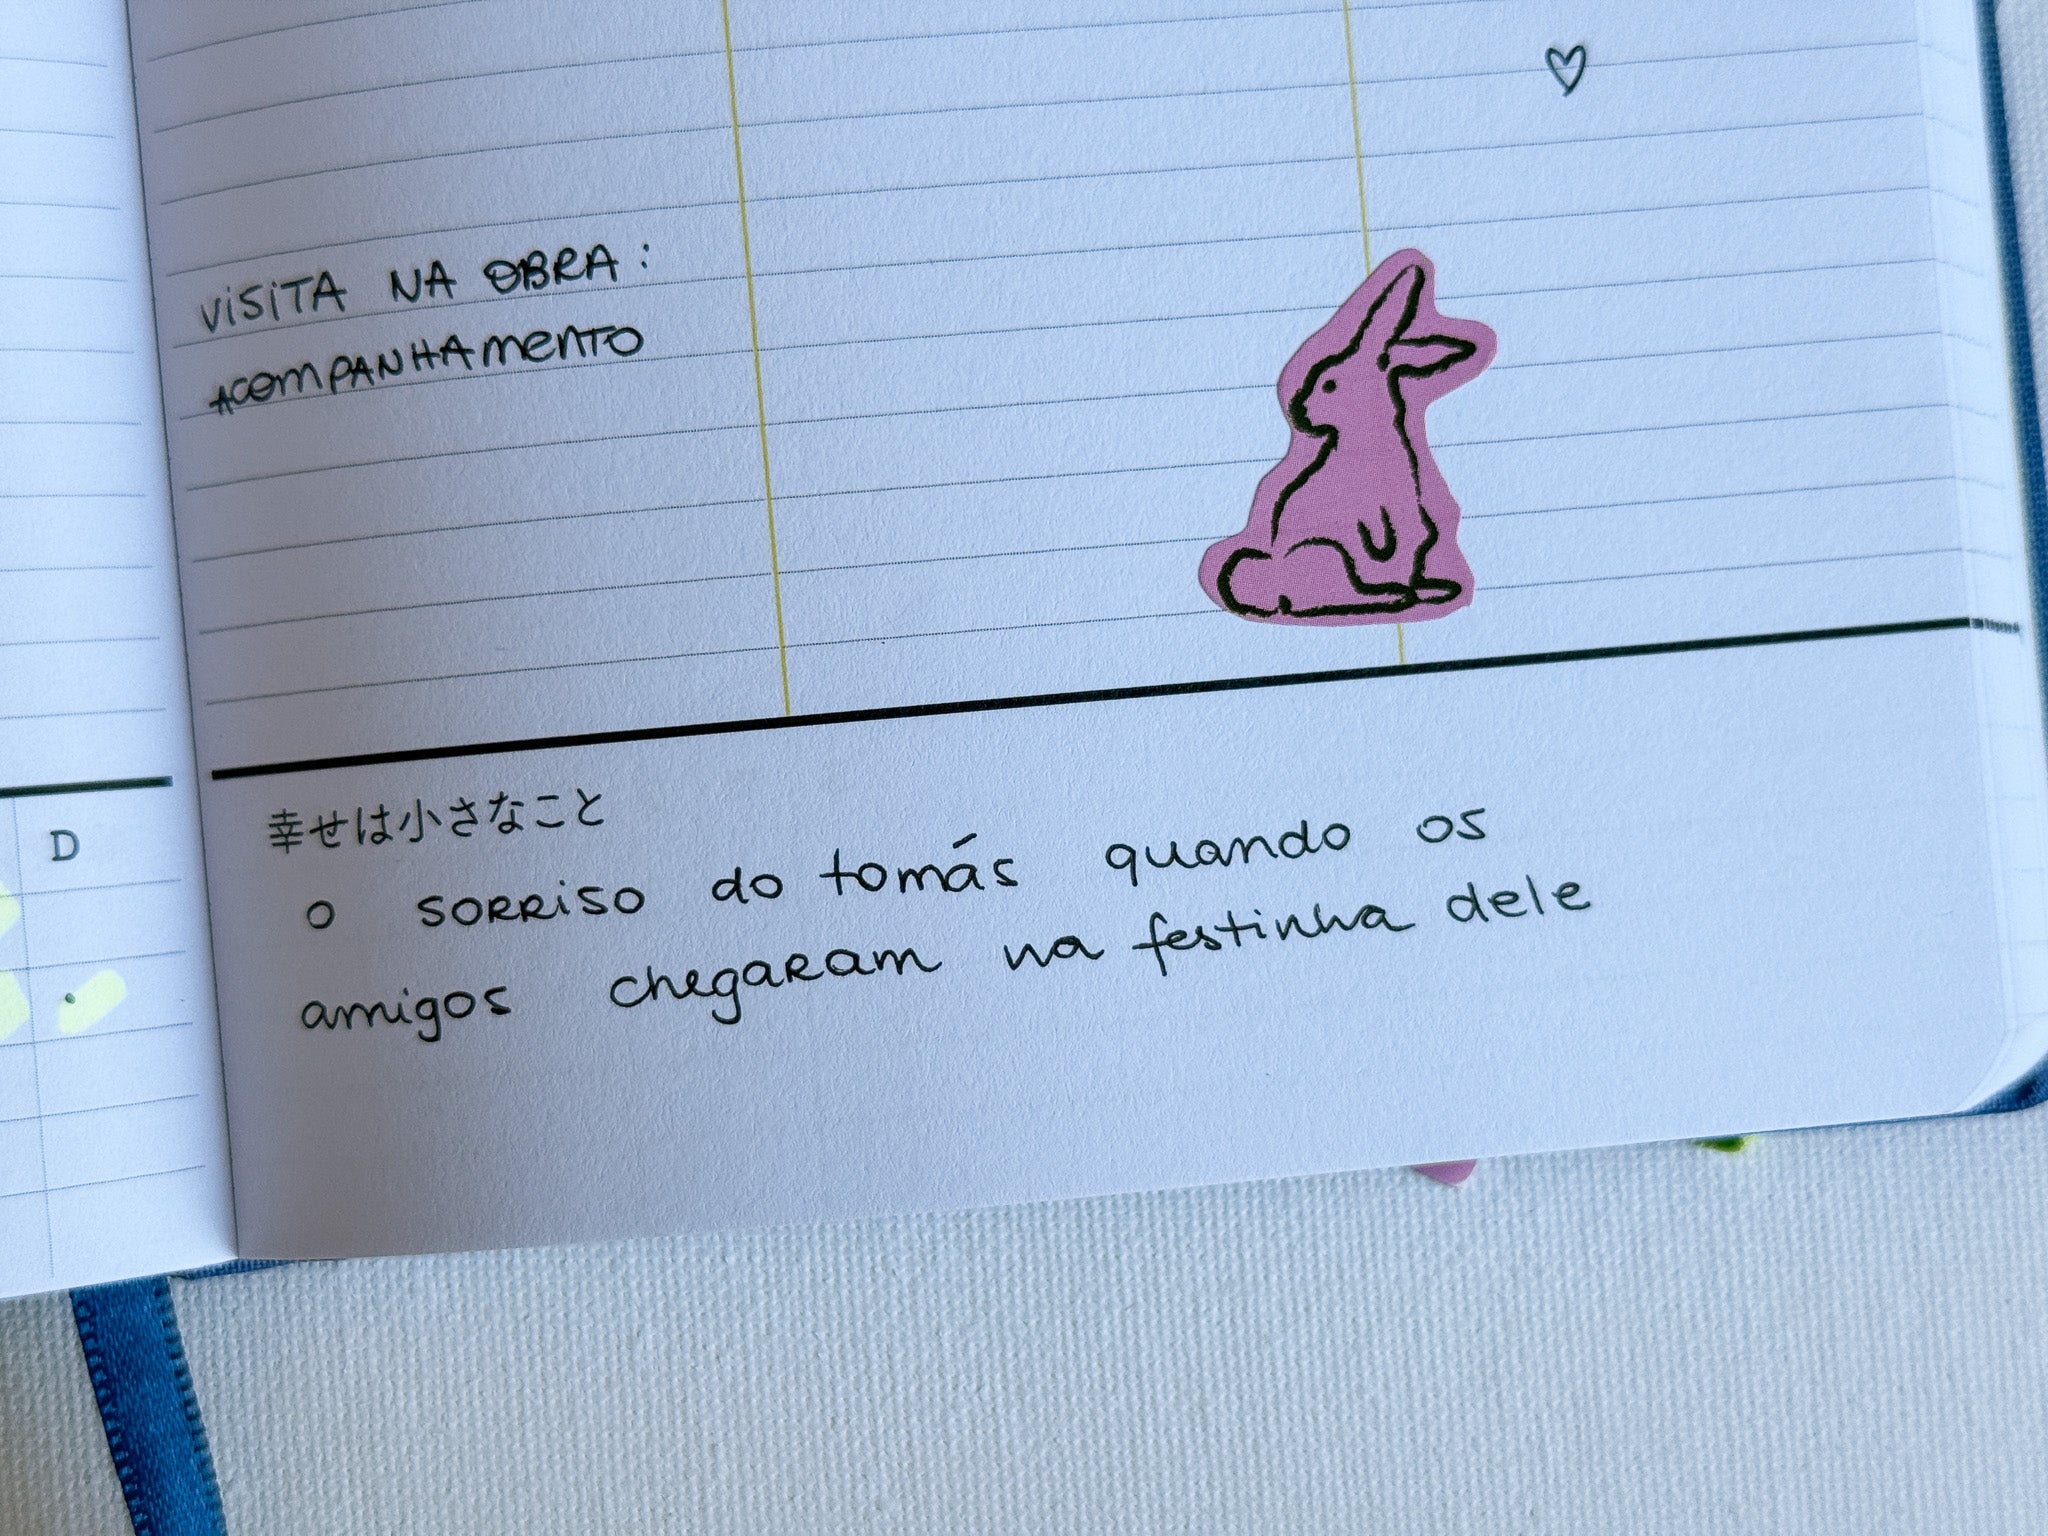 VISITA NA OBRA:
ACOMPANHAMENTO
D
幸せは小さなこと
o sorriso do tomás quando os
amigos chegaram na festinha dele